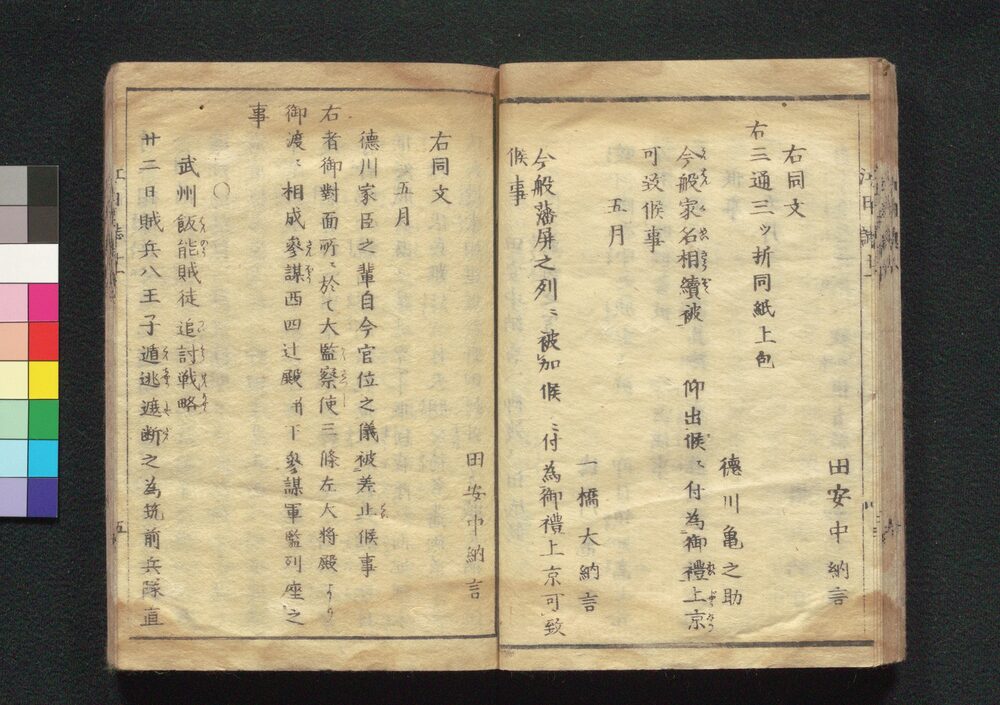 田安中納言
右同文
右三通三ッ折同紙上包
徳川亀之助
今般家名相續被　仰出候ニ付為御禮上京
可致候事
五月
一橋大納言
今般藩屏之列ニ被加候ニ付為御禮上京可致
候事
田安中納言
右同文
五月
徳川家臣之輩自今官位之儀被差止候事
右者御對面所ニ於て大監察使三條左大将殿より
御渡ニ相成參謀西四辻殿并下參謀軍監列座之
事
〇
武州飯能賊徒追討戦略
廿二日賊兵八王子遁逃遮断之為筑前兵隊直
五